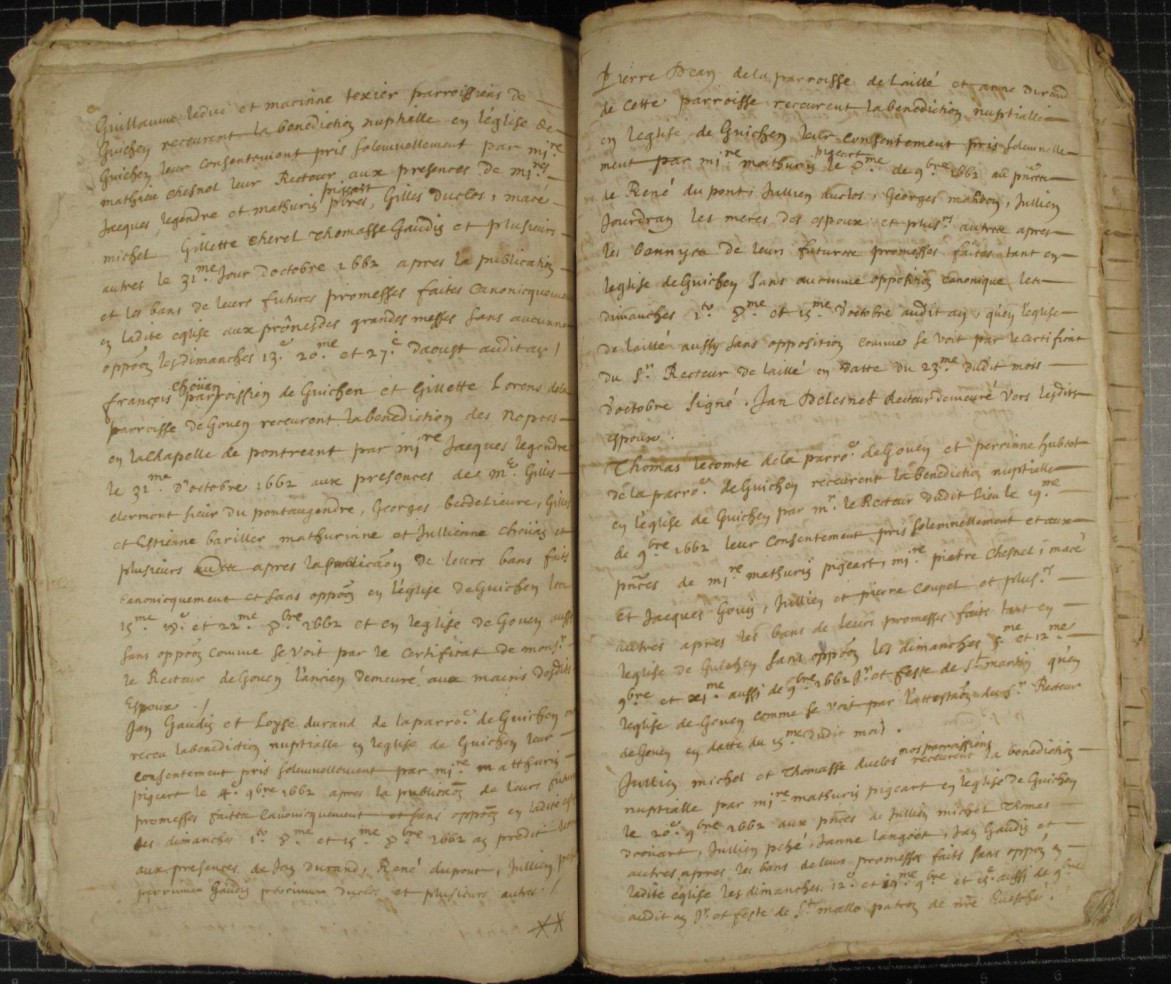 Guillaume leduc et mathurinne texier parroissiens de
Guichen receurent la benediction nuptialle en leglise de
Guichen leur consentement pris solemnellement par mire
mathieu chesnel leur Recteur aux presences de mires
Jacques legendre et mathurin pigeart pbres, Gilles Duclos, macé
michel Gillette cherel Thomasse Gaudin et plusieurs
autres le 31me Jour doctobre 1662 apres la publication
et les bans de leurs futures promesses faites canonicquement
en ladite eglise aux prônes des grandes messes sans aucunne
oppõn les dimanches 13e 20me et 27e daoust audit an /
françois choüan parroissien de Guichen et Gillette Lorens de la
parroisse de Goven receuront la benediction des nopces
en la chapelle de pontreant par mire Jacques legendre
le 31me d'octobre 1662 aux presences de mr Gilles
clermont sieur du pontaugendre, Georges bedelieure, Gilles
et Estienne bariller mathurinne et Jullienne choüan et
plusieurs autre apres la publicaõn de leurs bans fais
canonicquement et sans oppõn en l'église de Guichen les
15me et 22me 8bre 1662 et en leglise de Goven aussi
sans oppõn comme se voit par le certificat de monsr
le Recteur de Goven l'ancien demeuré aux mains desdits
Espoux.
Jan Gaudin et Loyse durand de la parroe de Guichen ont
receu la benediction nuptialle en leglise de Guichen leur
consentement pris solemnellement par mire matthurin
pigeart le 4e 9bre 1662 apres la publicaõn de leurs futures
promesses faites canonicquement et sans oppõn en ladite eglise
les dimanches 1er 8me et 15me 8bre 1662 an predit
aux presences de Jan Durand, René dupont, Jullien
perrinne Gaudin Duclos et plusieurs autres /
Pierre Dean de la parroisse de Laillé et anne Durand
de cette parroisse receurent la benediction nuptialle
en leglise de Guichen leur consentement pris solemnelle-
ment par mire mathurin pigeart le 8me de 9bre 1662 au pñces
de René du pont, Jullien duclos, Georges mahdon, Jullien
Jourdran les meres des espoux et plusrs autres apres
les bannyes de leurs futures promesses faites tant en
leglise de Guichen sans aucunne opposition canonique les
dimanches 1er 8me et 15me d'octobre audit an, qu'en leglise
de laillé aussy sans opposition comme se voit par le certificat
du Sr Recteur de laillé en datte du 23me dudit mois
d'octobre signé. Jan Delesnet Recteur demeuré vers lesdits
espoux.
Thomas lecomte de la parroe de Goven et perrinne hubert
de la parroe de Guichen receurent la benediction nuptialle
en l'église de Guichen par mr le Recteur dudit lieu le 19me
de 9bre 1662 leur consentement pris solemnellement et aux
pñces de mire mathurin pigeart, mire piatre chesnel, macé
et Jacques Gouin, Jullien et pierre Coupel et plusrs
autres apres les bans de leurs promesses faits tant en
leglise de Guichen sans oppõn les dimanches 5me et 12me
9bre et xime aussi de 9bre 1662 Jr et feste de St martin qu'en
leglise de Goven comme se voit par l'attestaõn du Sr Recteur
de Goven en datte du 15me dudit mois.
Jullien michel et Thomasse duclos nos parroissiens receurent la benediction
nuptialle par mire mathurin pigeart en leglise de Guichen
le 20e 9bre 1662 aux pñces de Jullien michel Thomas
Drouart, Jullien pché, Janne langoët, Jan Gaudin et
autres, apres les bans de leurs promesses faits sans oppõn en
ladite église les dimanches 12e et 19me 9bre et 15e aussi de 9bre
audit an Jr et feste de St mallo patron de nre Euesché.